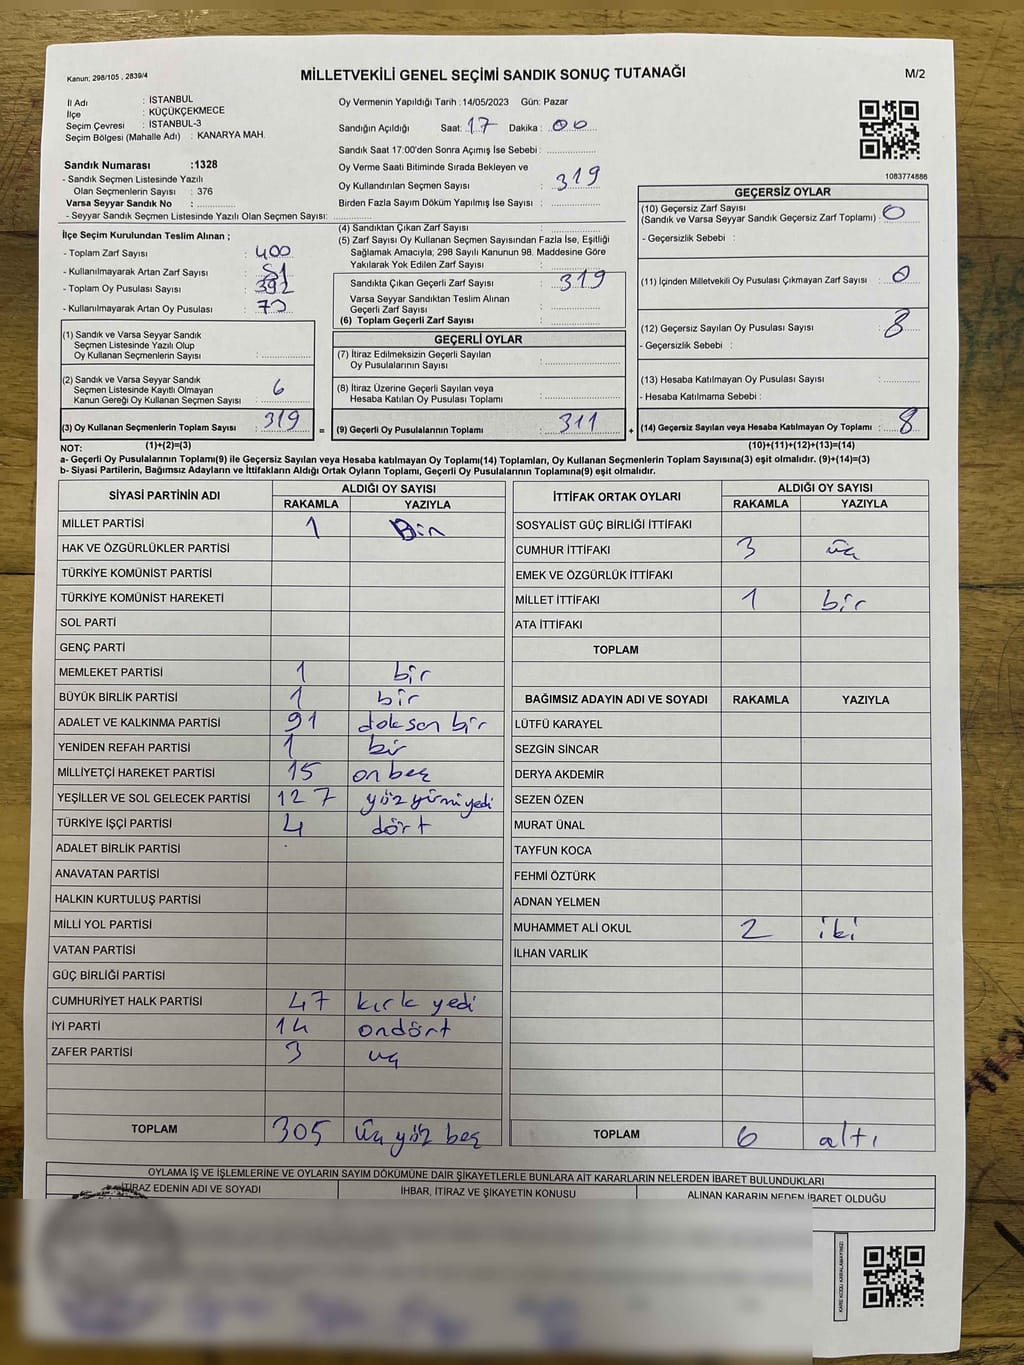 Kanun; 298/105 , 2839/4
MİLLETVEKİLİ GENEL SEÇİMİ SANDIK SONUÇ TUTANAĞI
M/2
İl Adı : İSTANBUL
İlçe : KÜÇÜKÇEKMECE
Seçim Çevresi : İSTANBUL-3
Seçim Bölgesi (Mahalle Adı) : KANARYA MAH.
Sandık Numarası :1328
- Sandık Seçmen Listesinde Yazılı
Olan Seçmenlerin Sayısı : 376
Varsa Seyyar Sandık No :
- Seyyar Sandık Seçmen Listesinde Yazılı Olan Seçmen Sayısı:
Oy Vermenin Yapıldığı Tarih :14/05/2023 Gün: Pazar
Sandığın Açıldığı Saat: 17 Dakika : 00
Sandık Saat 17:00'den Sonra Açımış İse Sebebi :
Oy Verme Saati Bitiminde Sırada Bekleyen ve
Oy Kullandırılan Seçmen Sayısı : 319
Birden Fazla Sayım Döküm Yapılmış İse Sayısı :
1083774886
İlçe Seçim Kurulundan Teslim Alınan ;
- Toplam Zarf Sayısı : 400
- Kullanılmayarak Artan Zarf Sayısı : 81
- Toplam Oy Pusulası Sayısı : 392
- Kullanılmayarak Artan Oy Pusulası : 73
(1) Sandık ve Varsa Seyyar Sandık
Seçmen Listesinde Yazılı Olup
Oy Kullanan Seçmenlerin Sayısı :
(2) Sandık ve Varsa Seyyar Sandık
Seçmen Listesinde Kayıtlı Olmayan
Kanun Gereği Oy Kullanan Seçmen Sayısı : 6
(3) Oy Kullanan Seçmenlerin Toplam Sayısı : 319
(1)+(2)=(3)
(4) Sandıktan Çıkan Zarf Sayısı :
(5) Zarf Sayısı Oy Kullanan Seçmen Sayısından Fazla İse, Eşitliği
Sağlamak Amacıyla; 298 Sayılı Kanunun 98. Maddesine Göre
Yakılarak Yok Edilen Zarf Sayısı :
Sandıkta Çıkan Geçerli Zarf Sayısı : 319
Varsa Seyyar Sandıktan Teslim Alınan
Geçerli Zarf Sayısı :
(6) Toplam Geçerli Zarf Sayısı :
GEÇERLİ OYLAR
(7) İtiraz Edilmeksizin Geçerli Sayılan
Oy Pusulalarının Sayısı :
(8) İtiraz Üzerine Geçerli Sayılan veya
Hesaba Katılan Oy Pusulası Toplamı :
= (9) Geçerli Oy Pusulalarının Toplamı : 311 +
GEÇERSİZ OYLAR
(10) Geçersiz Zarf Sayısı
(Sandık ve Varsa Seyyar Sandık Geçersiz Zarf Toplamı) : 0
- Geçersizlik Sebebi :
(11) İçinden Milletvekili Oy Pusulası Çıkmayan Zarf Sayısı : 0
(12) Geçersiz Sayılan Oy Pusulası Sayısı : 8
- Geçersizlik Sebebi :
(13) Hesaba Katılmayan Oy Pusulası Sayısı :
- Hesaba Katılmama Sebebi :
(14) Geçersiz Sayılan veya Hesaba Katılmayan Oy Toplamı : 8
(10)+(11)+(12)+(13)=(14)
NOT:
a- Geçerli Oy Pusulalarının Toplamı(9) ile Geçersiz Sayılan veya Hesaba Katılmayan Oy Toplamı(14) Toplamları, Oy Kullanan Seçmenlerin Toplam Sayısına(3) eşit olmalıdır. (9)+(14)=(3)
b- Siyasi Partilerin, Bağımsız Adayların ve İttifakların Aldığı Ortak Oyların Toplamı, Geçerli Oy Pusulalarının Toplamına(9) eşit olmalıdır.
SİYASİ PARTİNİN ADI ALDIĞI OY SAYISI
RAKAMLA YAZIYLA
MİLLET PARTİSİ 1 Bir
HAK VE ÖZGÜRLÜKLER PARTİSİ
TÜRKİYE KOMÜNİST PARTİSİ
TÜRKİYE KOMÜNİST HAREKETİ
SOL PARTİ
GENÇ PARTİ
MEMLEKET PARTİSİ 1 bir
BÜYÜK BİRLİK PARTİSİ 1 bir
ADALET VE KALKINMA PARTİSİ 91 doksan bir
YENİDEN REFAH PARTİSİ 1 bir
MİLLİYETÇİ HAREKET PARTİSİ 15 onbeş
YEŞİLLER VE SOL GELECEK PARTİSİ 127 yüz yirmi yedi
TÜRKİYE İŞÇİ PARTİSİ 4 dört
ADALET BİRLİK PARTİSİ
ANAVATAN PARTİSİ
HALKIN KURTULUŞ PARTİSİ
MİLLİ YOL PARTİSİ
VATAN PARTİSİ
GÜÇ BİRLİĞİ PARTİSİ
CUMHURİYET HALK PARTİSİ 47 kırk yedi
İYİ PARTİ 14 ondört
ZAFER PARTİSİ 3 üç
TOPLAM 305 üç yüz beş
İTTİFAK ORTAK OYLARI ALDIĞI OY SAYISI
RAKAMLA YAZIYLA
SOSYALİST GÜÇ BİRLİĞİ İTTİFAKI
CUMHUR İTTİFAKI 3 üç
EMEK VE ÖZGÜRLÜK İTTİFAKI
MİLLET İTTİFAKI 1 bir
ATA İTTİFAKI
TOPLAM
BAĞIMSIZ ADAYIN ADI VE SOYADI RAKAMLA YAZIYLA
LÜTFÜ KARAYEL
SEZGİN SİNCAR
DERYA AKDEMİR
SEZEN ÖZEN
MURAT ÜNAL
TAYFUN KOCA
FEHMİ ÖZTÜRK
ADNAN YELMEN
MUHAMMET ALİ OKUL 2 iki
İLHAN VARLIK
TOPLAM 6 altı
OYLAMA İŞ VE İŞLEMLERİNE VE OYLARIN SAYIM DÖKÜMÜNE DAİR ŞİKAYETLERLE BUNLARA AİT KARARLARIN NELERDEN İBARET BULUNDUKLARI
İTİRAZ EDENİN ADI VE SOYADI İHBAR, İTİRAZ VE ŞİKAYETİN KONUSU ALINAN KARARIN NEDEN İBARET OLDUĞU
KARE KODU KARALAMAYINIZ!